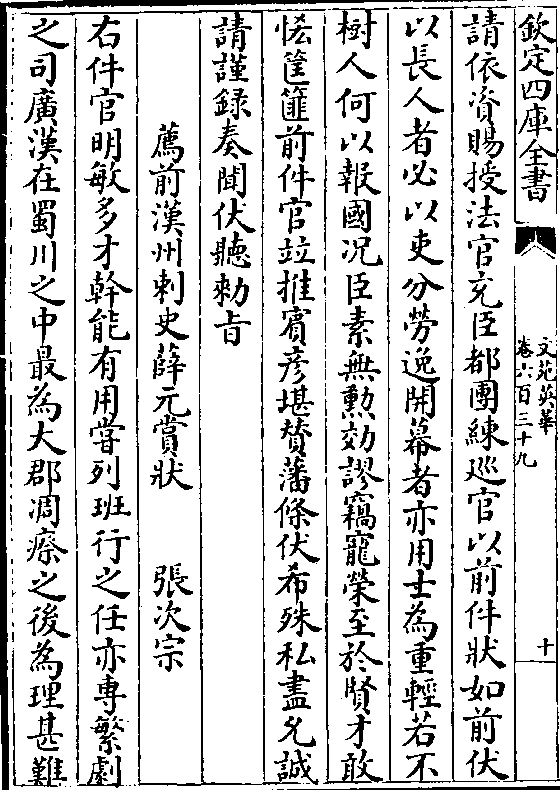 欽定四庫全書
文苑英華
卷六百三十九
十
請依資賜授法官充臣都團練巡官以前件狀如前伏
以長人者必以吏分勞逸開幕者亦用士為重輕若不
樹人何以報國况臣素無勲効謬竊寵榮至於賢才敢
恡筐篚前件官竝推賓彦堪賛藩條伏希殊私盡允誠
請謹録奏聞伏聽勅㫖
薦前漢州刺史薛元賞狀 張次宗
右件官明敏多才幹能有用嘗列班行之任亦専繁劇
之司廣漢在蜀川之中最為大郡凋瘵之後為理甚難